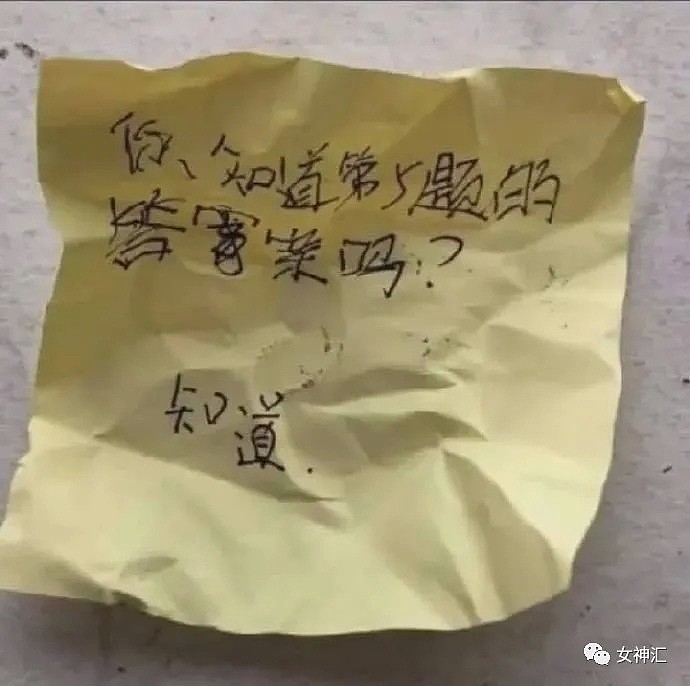 你知道第5题的
答案案吗?
知
道.
女神汇